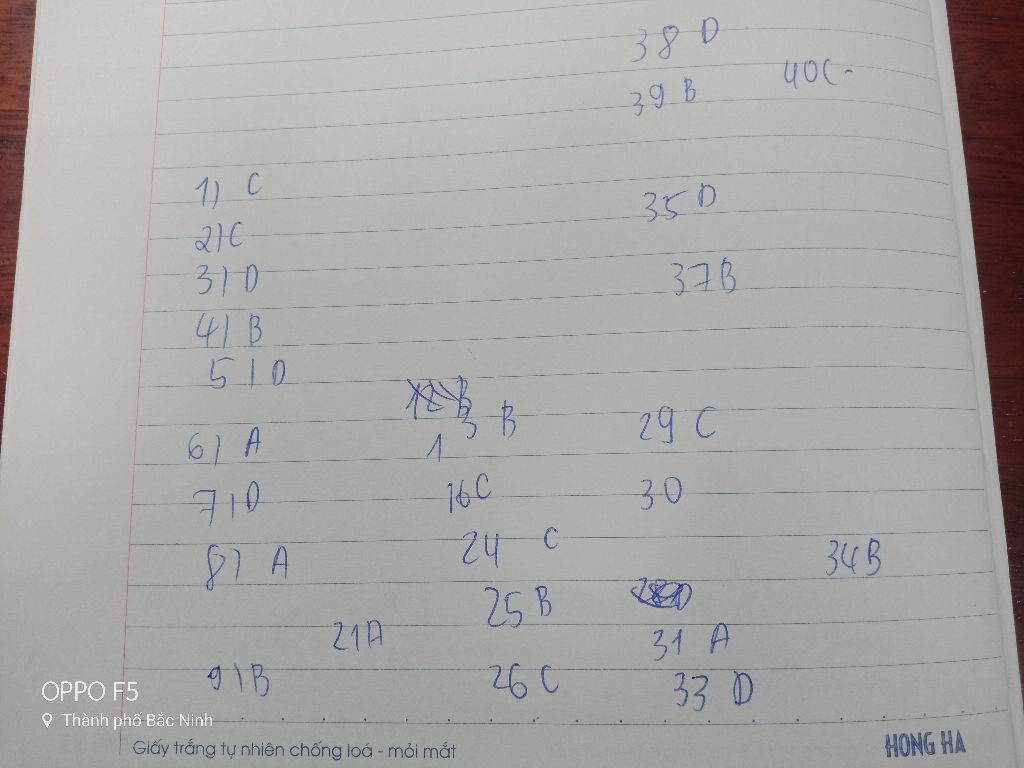 38 D
39 B
40C
1) C
2) C
3) D
4) B
5) D
6) A
7) D
8) A
9) B
21A
13 B
16C
24 C
25 B
26 C
35 D
37B
29 C
30
31 A
33 D
34B
OPPO F5
Thành phố Bắc Ninh
Giấy trắng tự nhiên chống loá - mỏi mắt
HONG HA